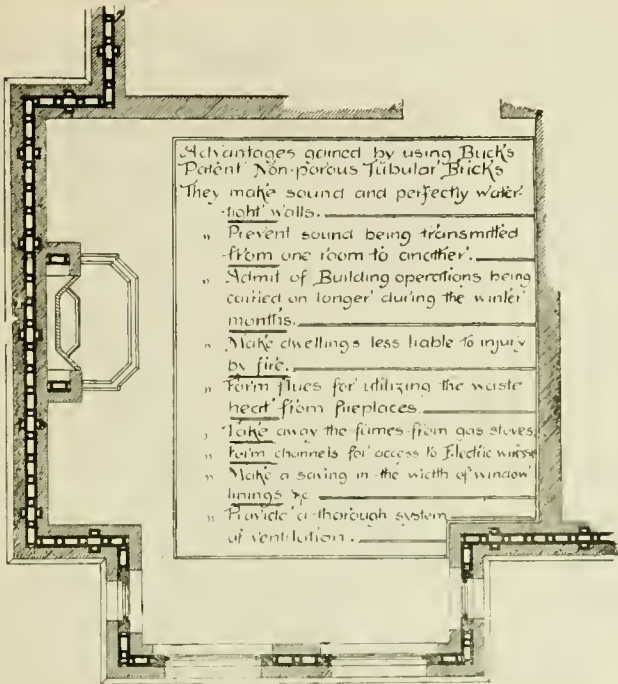 Advantages gained by using Buck's
Patent Non-porous Tubular Bricks
They make sound and perfectly water-
-tight walls.
„ Prevent sound being transmitted
from one room to another.
„ Admit of Building operations being
carried on longer during the winter
months.
„ Make dwellings less liable to injury
by fire.
„ Form flues for utilizing the waste
heat from fireplaces.
„ Take away the fumes from gas stoves
„ Form channels for access to Electric wires
„ Make a saving in the width of window
linings &c
„ Provide a thorough system
of ventilution.